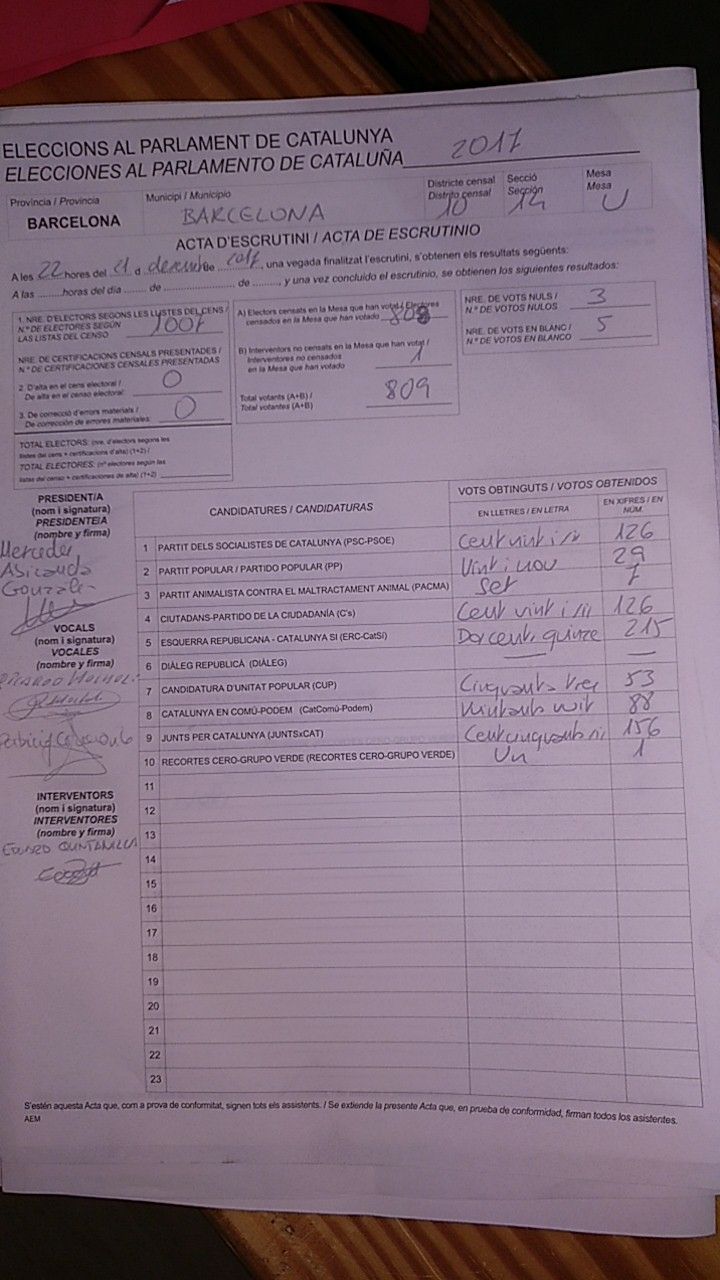 ELECCIONS AL PARLAMENT DE CATALUNYA
ELECCIONES AL PARLAMENTO DE CATALUÑA 2017
Província / Provincia
BARCELONA
Municipi / Municipio
BARCELONA
Districte censal
Distrito censal
10
Secció
Sección
14
Mesa
Mesa
U
ACTA D'ESCRUTINI / ACTA DE ESCRUTINIO
A les 22 hores del 21 d desembre 2017, una vegada finalitzat l'escrutini, s'obtenen els resultats següents:
A las ........horas del día ....... de .................... de ........, y una vez concluido el escrutinio, se obtienen los siguientes resultados:
1. NRE. D'ELECTORS SEGONS LES LLISTES DEL CENS /
N.º DE ELECTORES SEGÚN
LAS LISTAS DEL CENSO
1007
NRE. DE CERTIFICACIONS CENSALS PRESENTADES /
N.º DE CERTIFICACIONES CENSALES PRESENTADAS
2. D'alta en el cens electoral /
De alta en el censo electoral: 0
3. De correcció d'errors materials /
De corrección de errores materiales: 0
TOTAL ELECTORS: (nre. d'electors segons les
llistes del cens + certificacions d'alta) (1+2) /
TOTAL ELECTORES: (nº electores según las
listas del censo + certificaciones de alta) (1+2)
A) Electors censats en la Mesa que han votat / Electores
censados en la Mesa que han votado 808
B) Interventors no censats en la Mesa que han votat /
Interventores no censados
en la Mesa que han votado 1
Total votants (A+B) /
Total votantes (A+B) 809
NRE. DE VOTS NULS /
N.º DE VOTOS NULOS 3
NRE. DE VOTS EN BLANC /
N.º DE VOTOS EN BLANCO 5
PRESIDENT/A
(nom i signatura)
PRESIDENTE/A
(nombre y firma)
Mercedes
VOCALS
(nom i signatura)
VOCALES
(nombre y firma)
INTERVENTORS
(nom i signatura)
INTERVENTORES
(nombre y firma)
QUINTANILLA
CANDIDATURES / CANDIDATURAS
VOTS OBTINGUTS / VOTOS OBTENIDOS
EN LLETRES / EN LETRA
EN XIFRES / EN NÚM.
1 PARTIT DELS SOCIALISTES DE CATALUNYA (PSC-PSOE) Cent vint i sis 126
2 PARTIT POPULAR / PARTIDO POPULAR (PP) Vint i nou 29
3 PARTIT ANIMALISTA CONTRA EL MALTRACTAMENT ANIMAL (PACMA) Set 7
4 CIUTADANS-PARTIDO DE LA CIUDADANÍA (C's) Cent vint i sis 126
5 ESQUERRA REPUBLICANA - CATALUNYA SÍ (ERC-CatSí) Dos cents quinze 215
6 DIÀLEG REPUBLICÀ (DIÀLEG) — —
7 CANDIDATURA D'UNITAT POPULAR (CUP) Cinquanta tres 53
8 CATALUNYA EN COMÚ-PODEM (CatComú-Podem) Vuitanta vuit 88
9 JUNTS PER CATALUNYA (JUNTSxCAT) Cent cinquanta sis 156
10 RECORTES CERO-GRUPO VERDE (RECORTES CERO-GRUPO VERDE) Un 1
11
12
13
14
15
16
17
18
19
20
21
22
23
S'estén aquesta Acta que, com a prova de conformitat, signen tots els assistents. / Se extiende la presente Acta que, en prueba de conformidad, firman todos los asistentes.
AEM